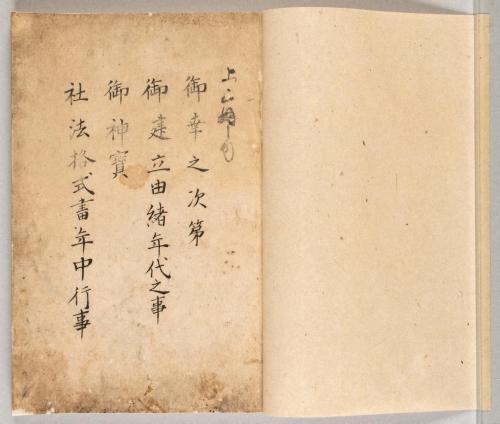 御幸之次第
御建立由緒年代之事
御神寳
社法格式書年中行事